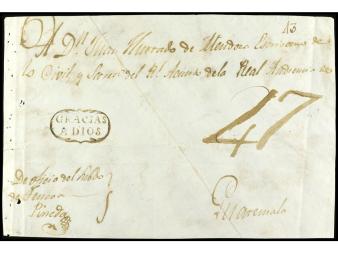 13
A Dn Juan Hurtado de Mendoza Escrivano de
lo Civil, y Srio del Rl Acuerdo dela Real Audiencia
GRACIAS
A DIOS
47
De oficio del
de
Pineda
Guatemala